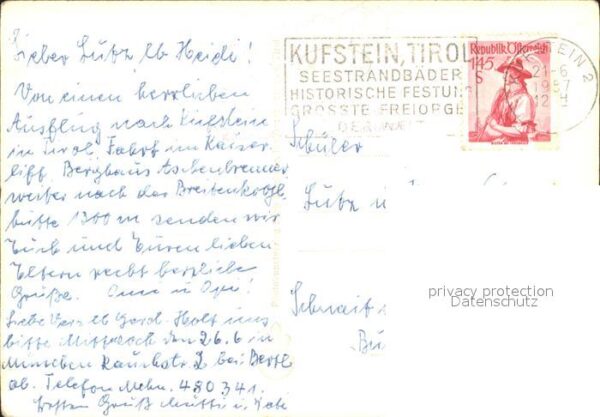 Lieber Lutz, lb Heidi!
Von einem herrlichen
Ausflug nach Kufstein
in Tirol. Fahrt im Kaiser
lift. Berghaus Aschenbrenner
weiter nach der
hütte 1300 m senden wir
Euch und Euren lieben
Eltern recht herzliche
Grüße. Omi u Opa!
bitte Mittwoch den 26.6 in
München 2 bei
ab. Telefon 480341.
Gruß Mutti u.
KUFSTEIN, TIROL
SEESTRANDBÄDER
HISTORISCHE FESTUNG
GRÖSSTE FREIORGEL
DER WELT
Republik Österreich
145
S
KUFSTEIN 2
21-6
1957
12 H
Schüler
Lutz u
privacy protection
Datenschutz